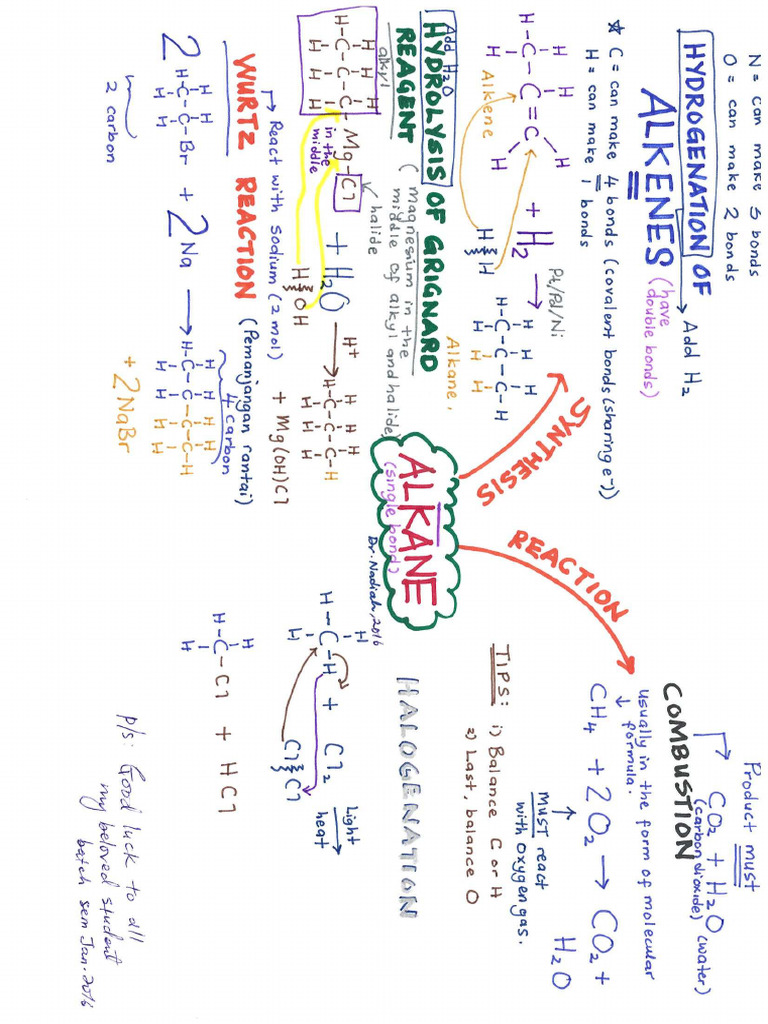 N = can make 3 bonds
O = can make 2 bonds
HYDROGENATION OF
→ Add H₂
ALKENES (have
double bonds)
☆ C = can make 4 bonds (covalent bonds (sharing e⁻))
H = can make 1 bonds
H H H
H-C-C=C
H H
Alkene
+ H₂
H H
Pt/Pd/Ni
→
H H H
H-C-C-C-H
H H H
Alkane,
Add H₂O
HYDROLYSIS OF GRIGNARD
REAGENT (magnesium in the
middle of alkyl and halide)
H H H
H-C-C-C-Mg-Cl
H H H
alkyl
in the
middle
halide
+ H₂O
H OH
H⁺
→
H H H
H-C-C-C-H
H H H
+ Mg(OH)Cl
WURTZ REACTION (Pemanjangan rantai)
→ React with sodium (2 mol)
H H
2 H-C-C-Br + 2Na →
H H
2 carbon
4 carbon
H H H H
H-C-C-C-C-H
H H H H
+ 2NaBr
ALKANE
(single bond)
Dr. Nadiah, 2016
SYNTHESIS
REACTION
Product must
CO₂ + H₂O
(carbon dioxide) (water)
COMBUSTION
usually in the form of molecular
↓ formula.
CH₄ + 2O₂ → CO₂ +
H₂O
MUST react
with oxygen gas.
TIPS: i) Balance C or H
2) Last, balance O
HALOGENATION
H
H-C-H + Cl₂
H
Cl Cl
Light
→
heat
H
H-C-Cl + HCl
H
p/s: Good luck to all
my beloved student
batch sem Jan-2016